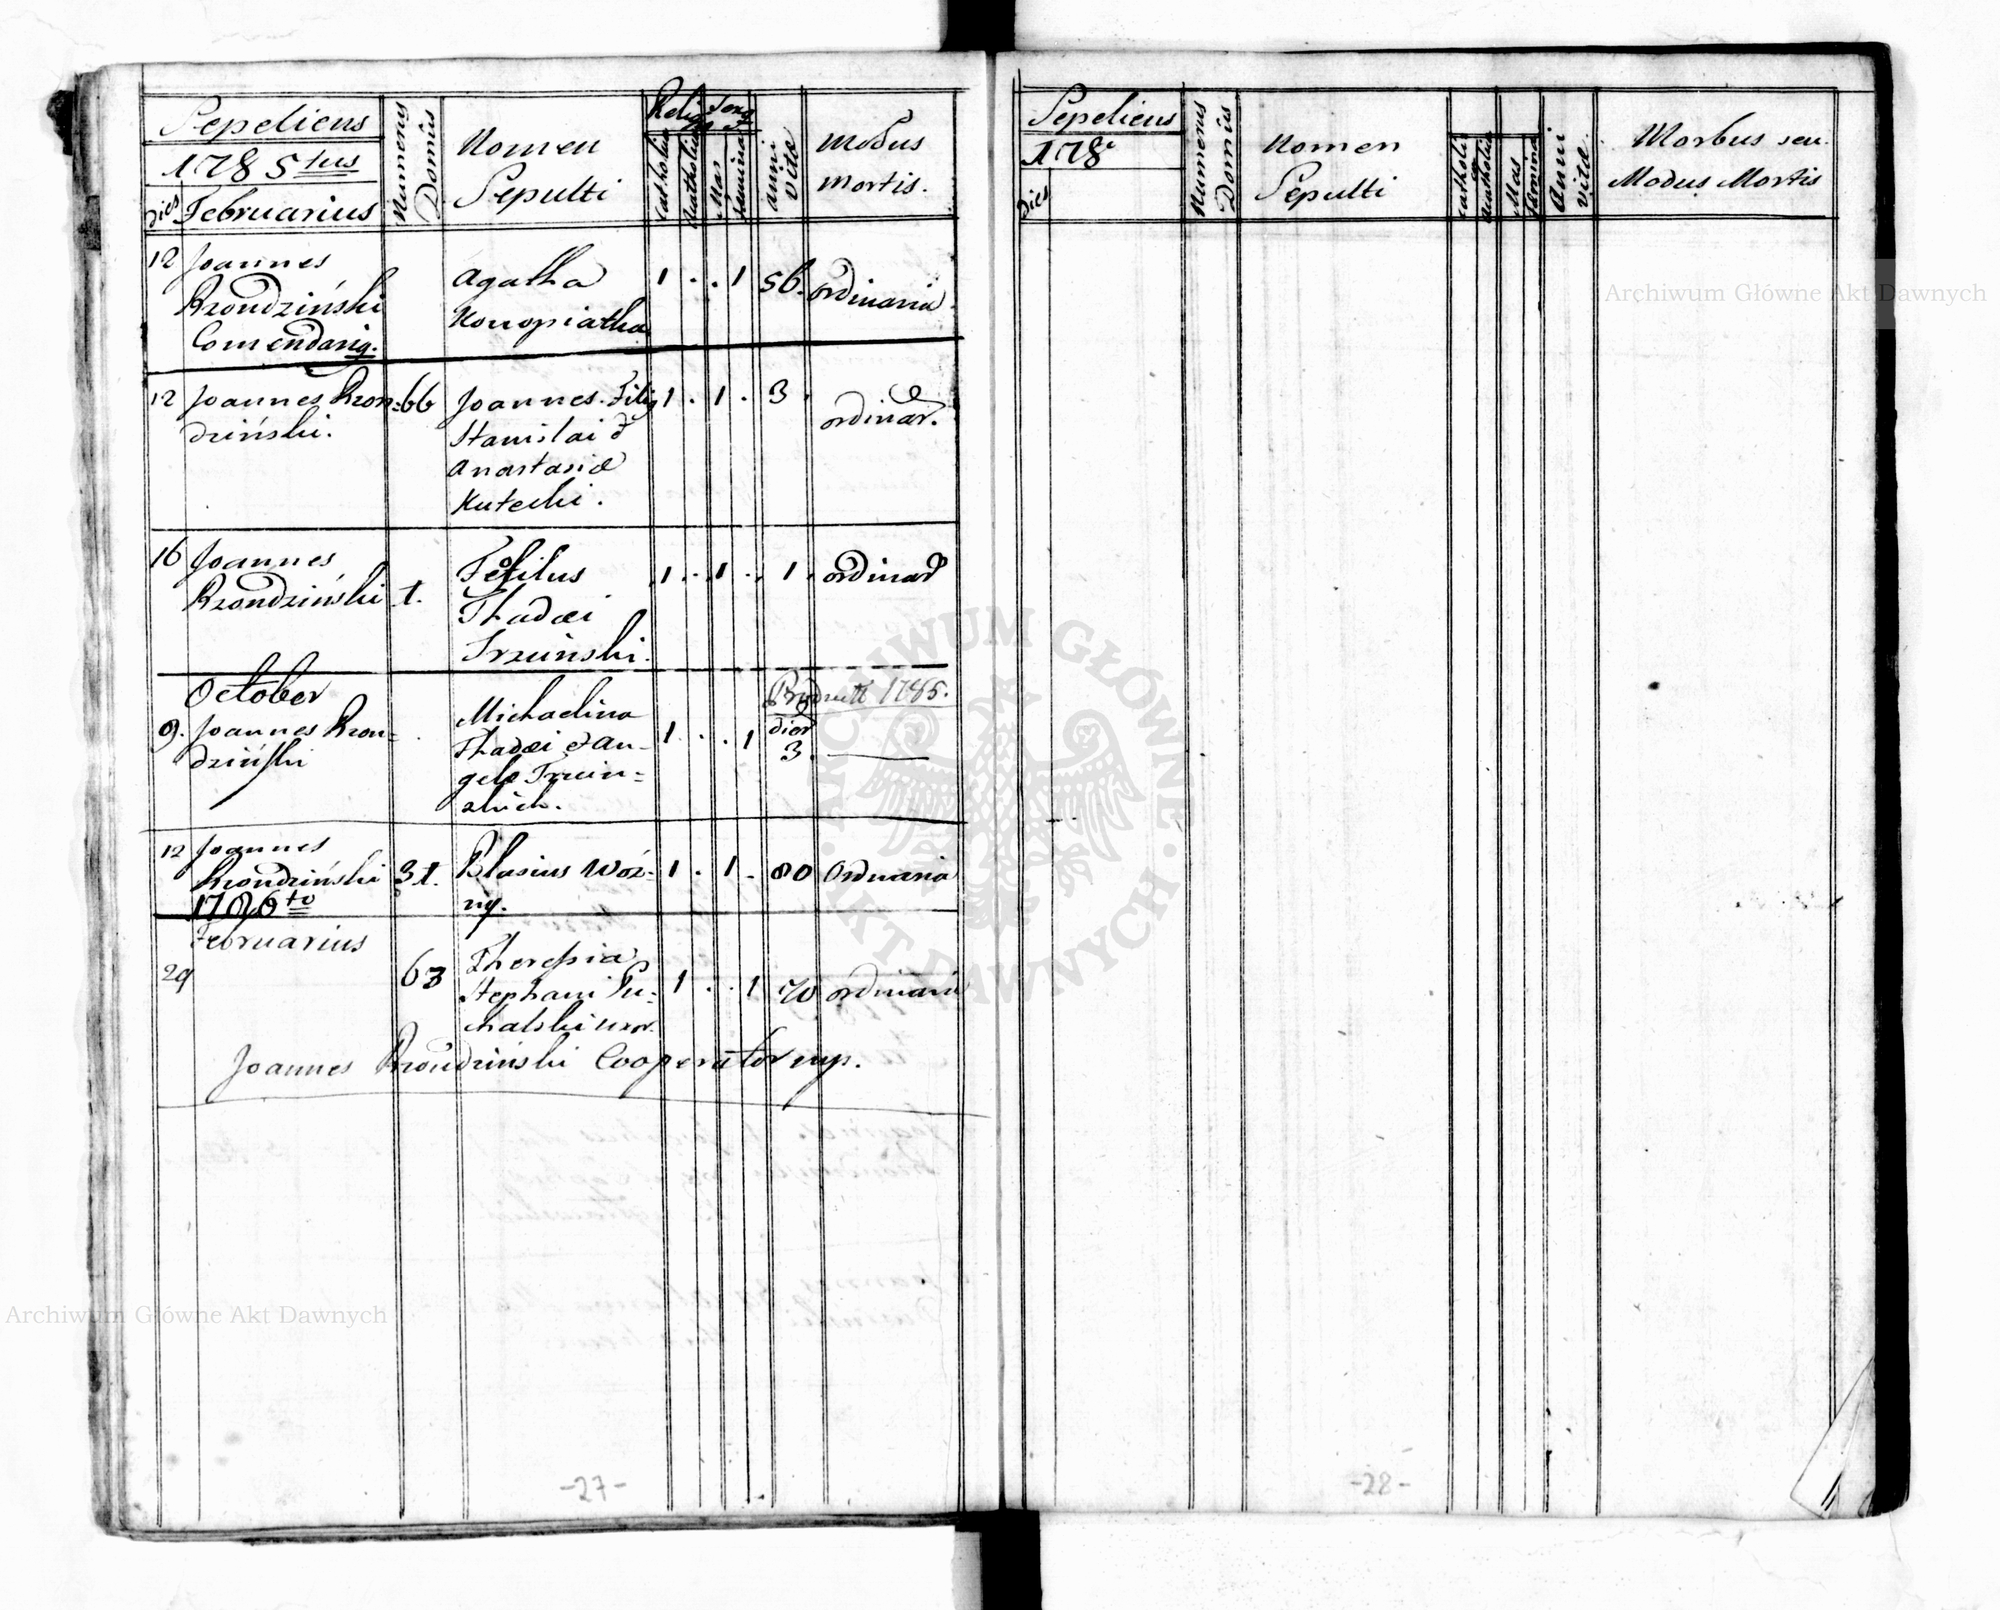 Sepeliens
1785tus
Dies Februarius
Numerus Domûs
Nomen
Sepulti
Religio
Catholica
Acatholica
Sexus
Mas
Femina
Anni Vitæ
Modus
Mortis.
12 Joannes
Rzondziński
Comendarig.
Agatha
Konopiatka
1 . . 1 56. ordinaria
12 Joannes Rzon=
dziński.
66
Joannes. Filig
Stanislai &
Anastasiæ
Kutecki.
1 . 1 . 3. ordinar.
16 Joannes
Rzondziński
1.
Thadæi
1 . 1 . 1. ordinar
October
9. Joannes Rzon=
dziński
Michaelina
Thadæi & An-
1 . . 1 dier 3.
1785.
12 Joannes
Rzondziński
31.
Blasius Woź-
ny.
1 . 1 . 80 Ordinaria
1786to
Februarius
29
63
Theressia
Stephani Pu-
chalski uxor.
1 . . 1 70 ordinaria
Joannes Rzondziński Cooperator mp.
-27-
Sepeliens
178
Dies
Numerus Domûs
Nomen
Sepulti
Catholica
Acatholica
Mas
Femina
Anni Vitæ.
Morbus seu
Modus Mortis
-28-
Archiwum Główne Akt Dawnych
Archiwum Główne Akt Dawnych
ARCHIWUM GŁÓWNE · AKT DAWNYCH ·